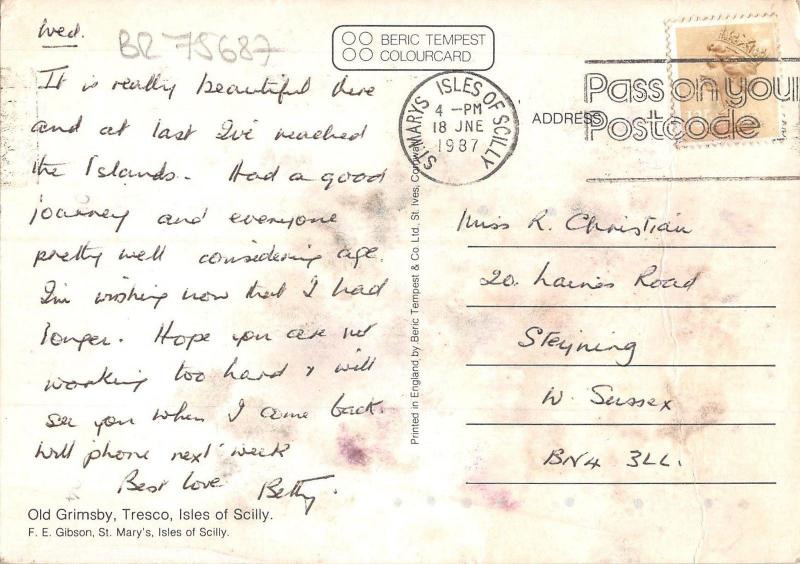 Wed.
BR 75687
BERIC TEMPEST
COLOURCARD
It is really beautiful here
and at last I've reached
the Islands. Had a good
journey and everyone
pretty well considering age.
I'm wishing now that I had
longer. Hope you are not
working too hard & will
see you when I come back.
Will phone next week
Best love Betty.
Old Grimsby, Tresco, Isles of Scilly.
F. E. Gibson, St. Mary's, Isles of Scilly.
Printed in England by Beric Tempest & Co. Ltd., St. Ives, Cornwall
ST. MARYS ISLES OF SCILLY
4 - PM
18 JNE
1987
Pass on your
Postcode
ADDRESS
Miss R. Christian
20. Laines Road
Steyning
W. Sussex
BN4 3LL.